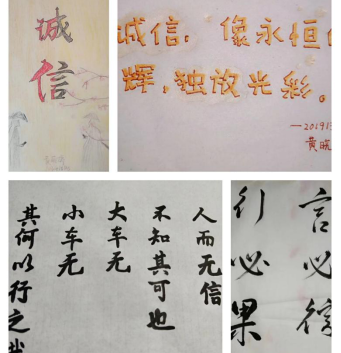 诚
信
诚信，像永恒
辉，独放光彩。
人而无信
不知其可也
大车无
小车无
其何以行之哉
言必信
行必果